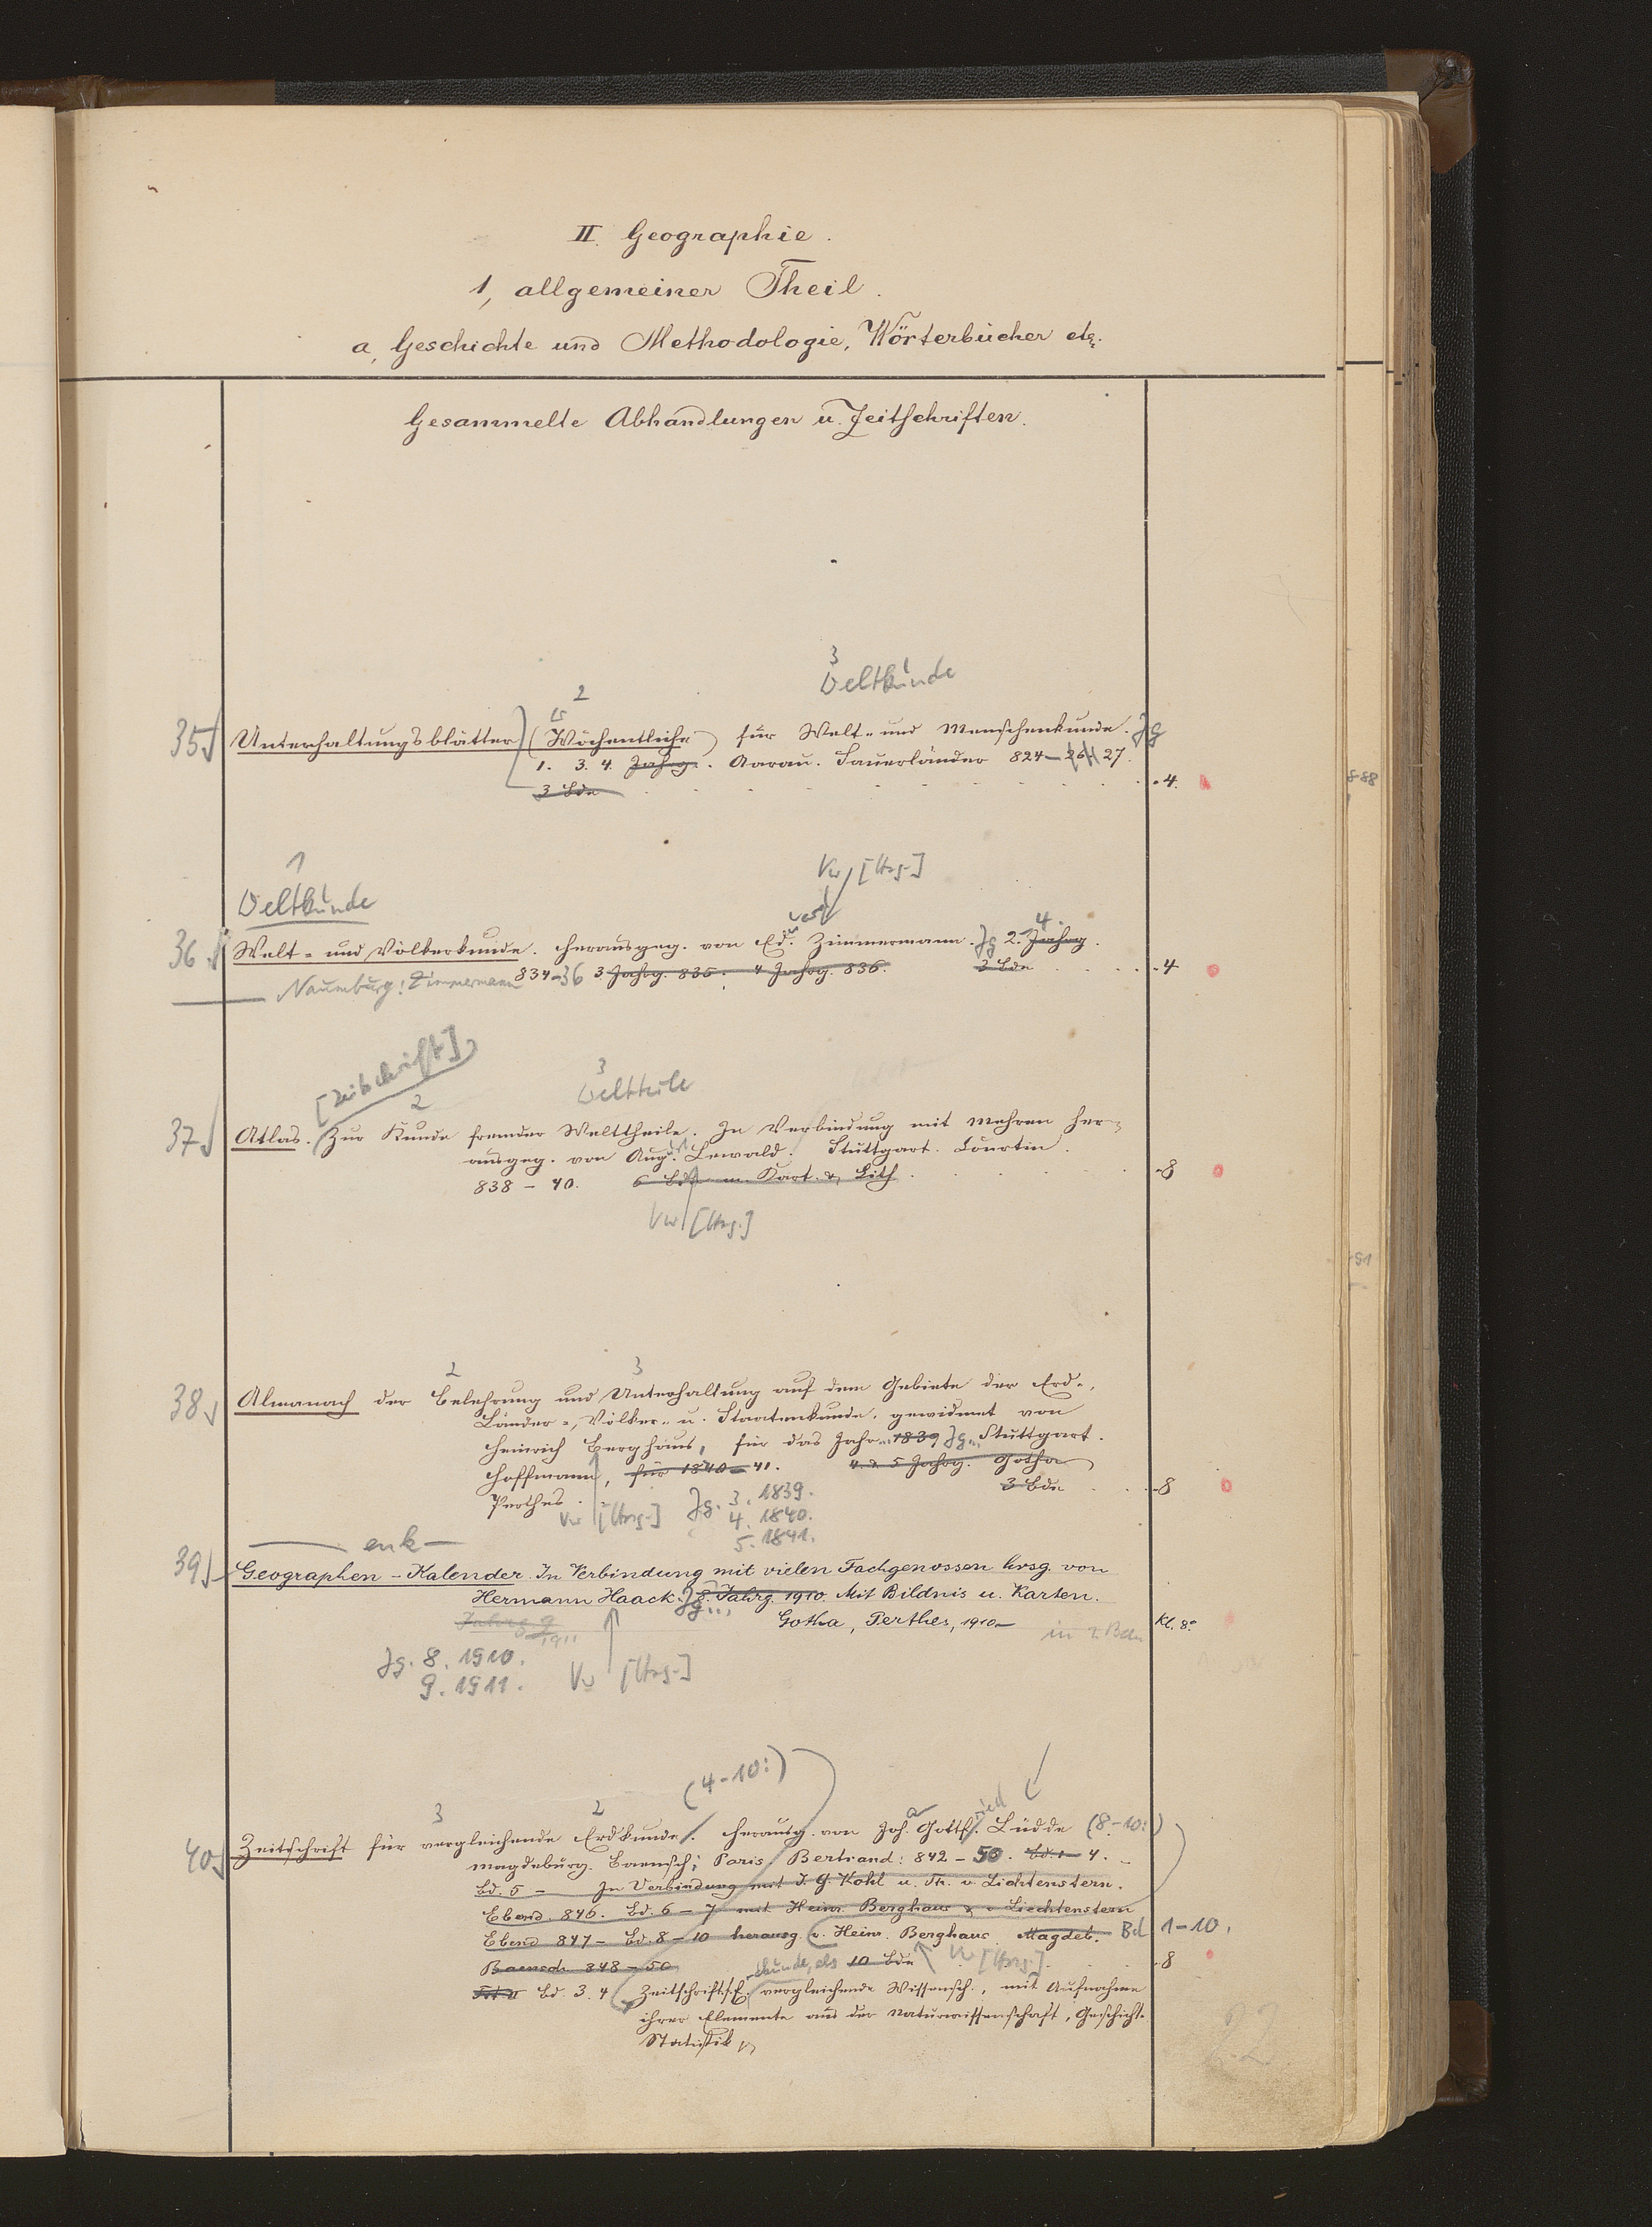 II. Geographie.
1, allgemeiner Theil.
a, Geschichte und Methodologie, Wörterbücher etc.
Gesammelte Abhandlungen u. Zeitschriften.
3
Weltkunde
2
35 Unterhaltungsblätter (Wöchentliche) für Welt- und Menschenkunde. Jg
1. 3. 4. Jahrg. Aarau. Sauerländer 824-26 27.
3 Bde 4.
1
Weltkunde
Vw [Hrsg.]
4
36. Welt- und Völkerkunde. Herausgeg. von Ed. Zimmermann. Jg 2. Jahrg.
Naumburg: Zimmermann 834-36 3 Jahrg. 835. 4 Jahrg. 836. 3 Bde 4
[Zeitschrift]
2
3
Weltteile
37 Atlas. Zur Kunde fremder Welttheile. In Verbindung mit Mehren her-
ausgeg. von Aug. Lewald. Stuttgart. Courtin.
838-40. 6 Bde m. Kart. & Lith. 8
Vw [Hrsg.]
2 3
38 Almanach der Belehrung und Unterhaltung auf dem Gebiete der Erd-,
Länder-, Völker- u. Staatenkunde, gewidmet von
Heinrich Berghaus, für das Jahr 1839 Jg... Stuttgart.
Hoffmann, für 1840-41. 4. & 5 Jahrg. Gotha
Perthes. 3 Bde 8
Vw [Hrsg.] Jg. 3. 1839.
4. 1840.
5. 1841.
enk
39 Geographen-Kalender. In Verbindung mit vielen Fachgenossen hrsg. von
Hermann Haack. Jg... 8. Jahrg. 1910. Mit Bildnis u. Karten.
Gotha, Perthes, 1910- in 2 Bdn Kl. 8°
Jahrg. 9 1911
Jg. 8. 1910.
9. 1911. Vw [Hrsg.]
(4-10:)
3 2
40 Zeitschrift für vergleichende Erdkunde. Herausg. von Joh. Gottfried Lüdde (8-10:)
Magdeburg. Baensch; Paris Bertrand: 842-50. Bd. 1-4.
Bd. 5 - In Verbindung mit J. G. Kohl u. Th. v. Lichtenstern.
Ebend. 846. Bd. 6-7 mit Heinr. Berghaus & v. Liechtenstern
Ebend 847- Bd. 8-10 herausg. v. Heinr. Berghaus. Magdeb. Bd 1-10.
Baensch 848-50 10 Bde Vw [Hrsg.] 8
Bd. 3. 4 Zeitschrift f. E-kunde, als vergleichende Wissensch., mit Aufnahme
ihrer Elemente aus der Naturwissenschaft, Geschicht.
Statistik
22